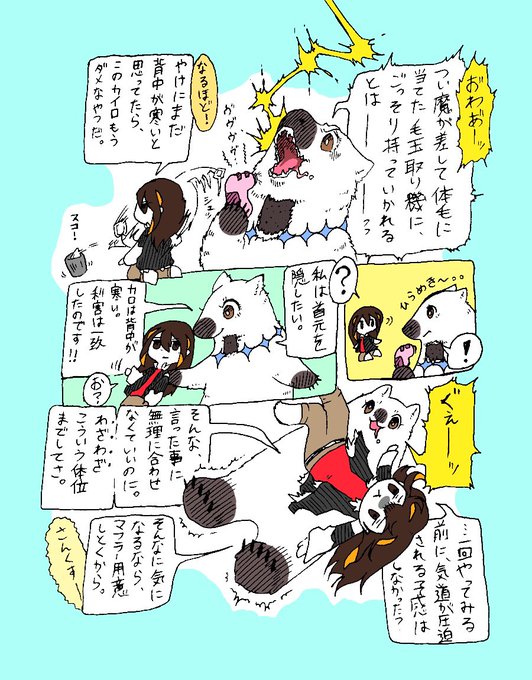 おわあーッ
つい魔が差して体毛に
当てた毛玉取り機に、
ごっそり持っていかれる
とはーーッ
ガガガガ
なるほど!
やけにまだ
背中が寒いと
思ってたら、
このカイロもう
ダメなやつだ。
スコー!
ひらめき〜。。
?
!
私は首元を
隠したい。
カロは背中が
寒い。
利害は一致
したのです!!
お?
ぐえーーッ
…一回やってみる
前に、気道が圧迫
される予感は
しなかった?
そんな、
言った事に
無理に合わせ
なくていいのに。
わざわざ
こういう体位
までしてさ。
そんなに気に
なるなら
マフラー用意
しとくから。
さんくす